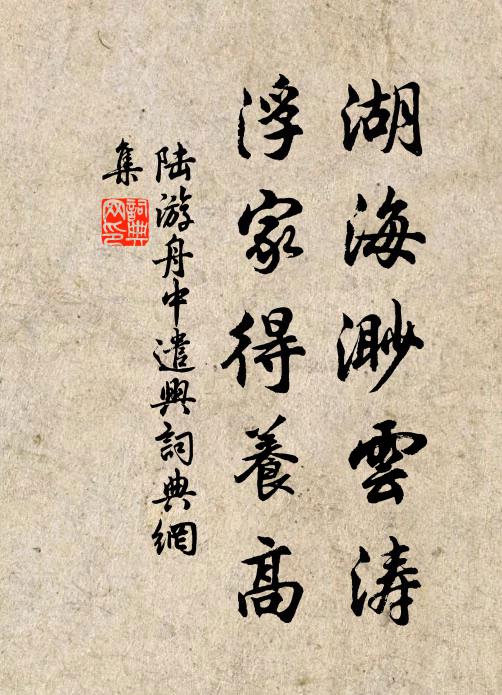 湖海渺雲涛
浮家得養高
陆游舟中遣興詞典網
集
詞典
网印